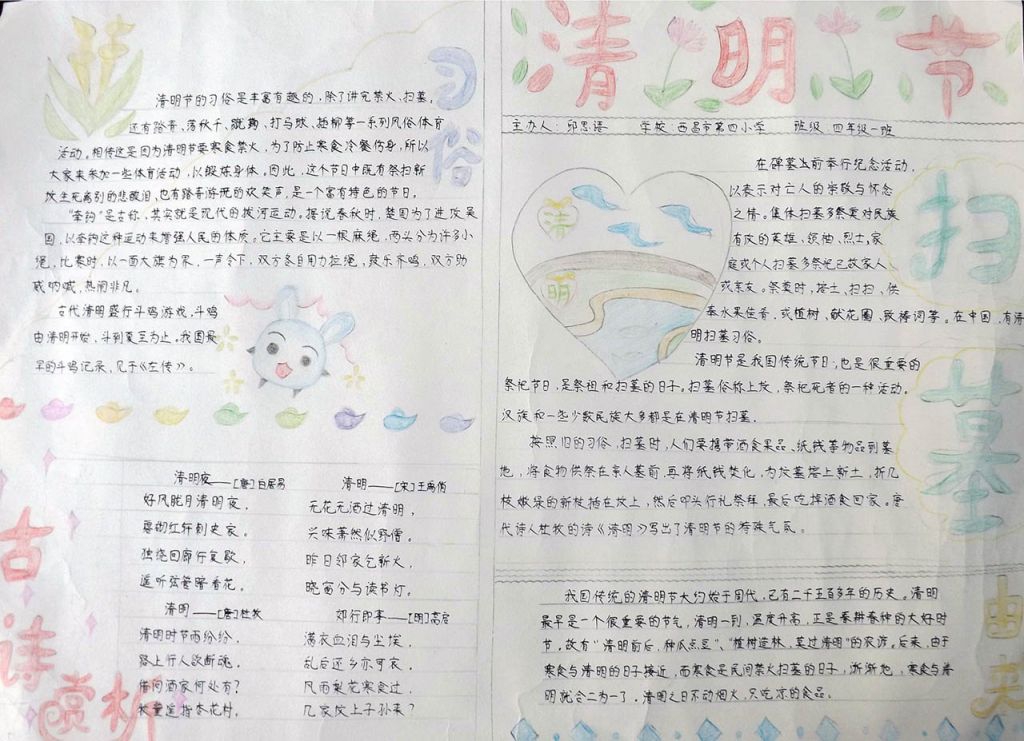 习俗
清明节的习俗是丰富有趣的，除了讲究禁火、扫墓，
还有踏青、荡秋千、蹴鞠、打马球、插柳等一系列风俗体育
活动。相传这是因为清明节要寒食禁火，为了防止寒食冷餐伤身，所以
大家来参加一些体育活动，以锻炼身体。因此，这个节日中既有祭扫新
坟生死离别的悲酸泪，也有踏青游玩的欢笑声，是一个富有特色的节日。
“牵钩”是古称，其实就是现代的拔河运动。据说春秋时，楚国为了进攻吴
国，以牵钩这种运动来增强人民的体质。它主要是以一根麻绳，两头分为许多小
绳，比赛时，以一面大旗为界，一声令下，双方各自用力拉绳，鼓乐齐鸣，双方助
威呐喊，热闹非凡。
古代清明盛行斗鸡游戏，斗鸡
由清明开始，斗到夏至为止。我国最
早的斗鸡记录，见于《左传》。
古诗赏析
清明夜——[唐]白居易
好风胧月清明夜，
碧砌红轩刺史家。
独绕回廊行复歇，
遥听弦管暗看花。
清明——[宋]王禹偁
无花无酒过清明，
兴味萧然似野僧。
昨日邻家乞新火，
晓窗分与读书灯。
清明——[唐]杜牧
清明时节雨纷纷，
路上行人欲断魂。
借问酒家何处有？
牧童遥指杏花村。
郊行即事——[明]高启
满衣血泪与尘埃，
乱后还乡亦可哀。
风雨梨花寒食过，
几家坟上子孙来？
清明节
主办人：邱思语 学校：西昌市第四小学 班级：四年级一班
清
明
扫墓
在碑墓当前举行纪念活动，
以表示对亡人的崇敬与怀念
之情。集体扫墓多祭奠对民族
有功的英雄、领袖、烈士，家
庭或个人扫墓多祭祀已故家人
或亲友。祭奠时，培土、扫扫、供
奉水果佳香，或植树、献花圈、致悼词等。在中国，有清
明扫墓习俗。
清明节是我国传统节日，也是很重要的
祭祀节日，是祭祖和扫墓的日子。扫墓俗称上坟，祭祀死者的一种活动。
汉族和一些少数民族大多都是在清明节扫墓。
按照旧的习俗，扫墓时，人们要携带酒食果品、纸钱等物品到墓
地，将食物供祭在亲人墓前，再将纸钱焚化，为坟墓培上新土，折几
枝嫩绿的新枝插在坟上，然后叩头行礼祭拜，最后吃掉酒食回家。唐
代诗人杜牧的诗《清明》写出了清明节的特殊气氛。
由来
我国传统的清明节大约始于周代，已有二千五百多年的历史。清明
最早是一个很重要的节气，清明一到，温度升高，正是春耕春种的大好时
节，故有“清明前后，种瓜点豆”、“植树造林，莫过清明”的农谚。后来，由于
寒食与清明的日子接近，而寒食是民间禁火扫墓的日子，渐渐地，寒食与清
明就合二为一了，清明之日不动烟火，只吃凉的食品。